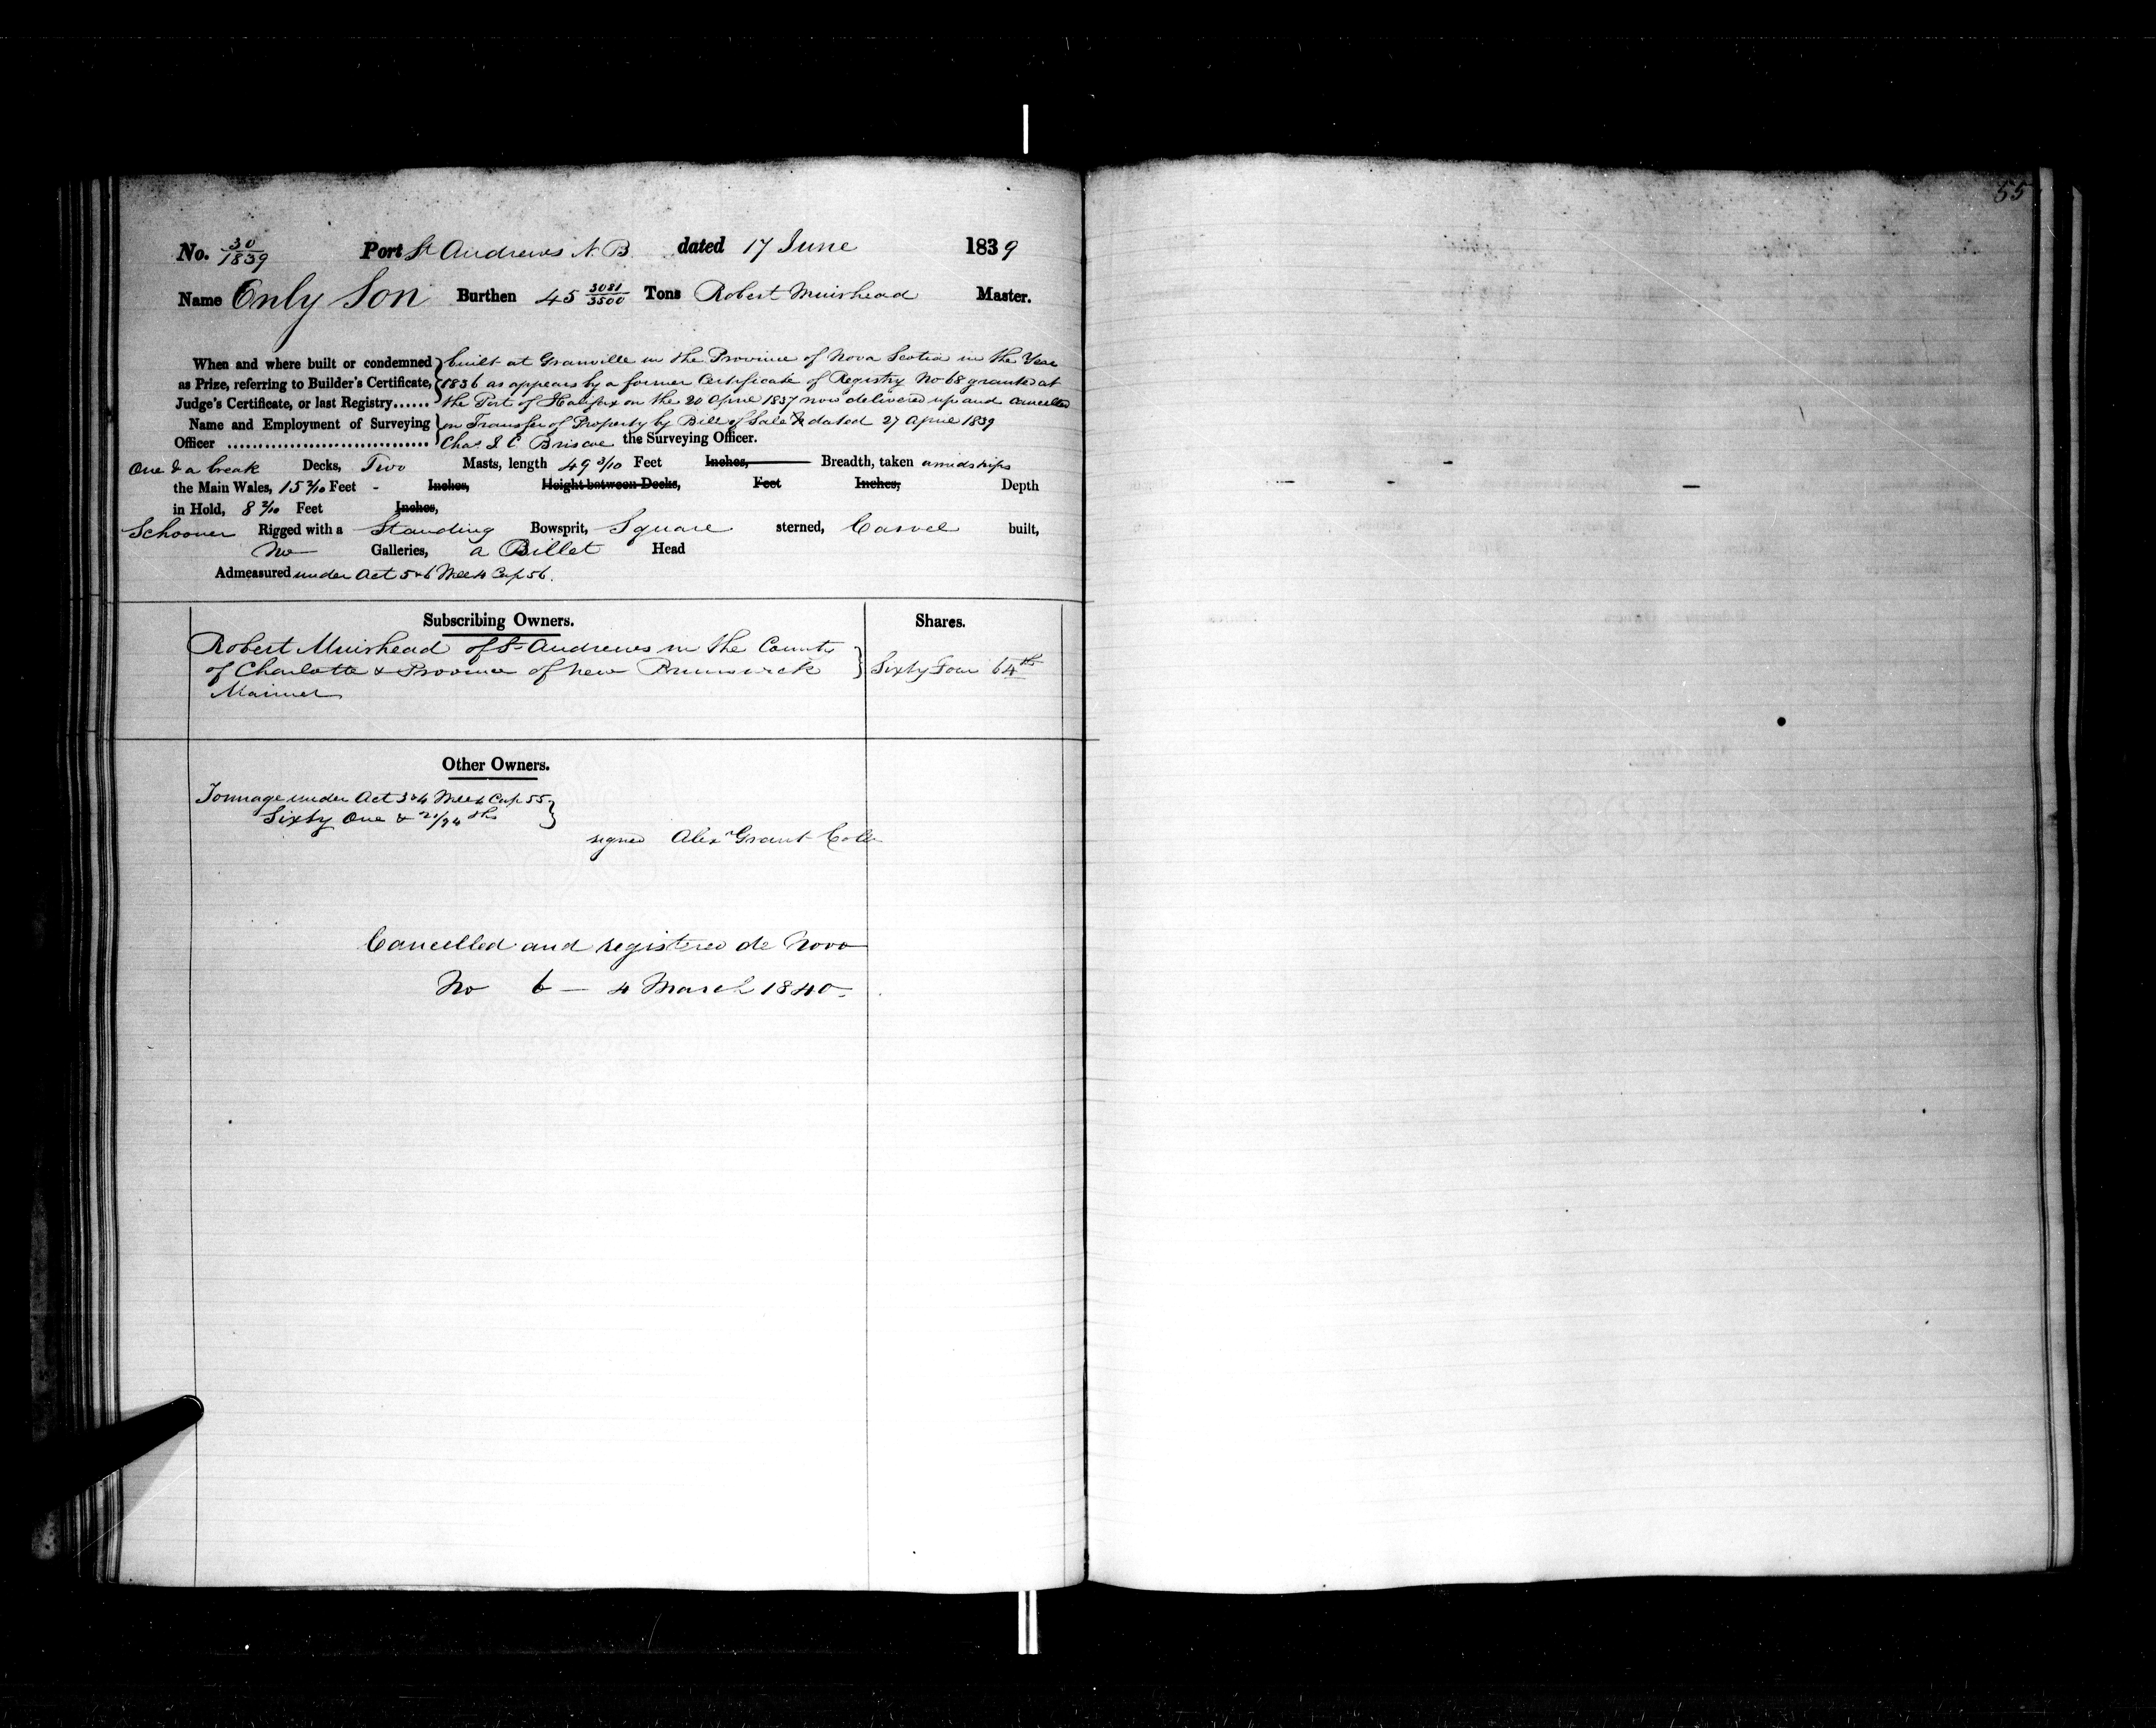 55
No. 30/1839 Port St Andrews N. B. dated 17 June 1839
Name Only Son Burthen 45 3081/3500 Tons Robert Muirhead Master.
When and where built or condemned } built at Granville in the Province of Nova Scotia in the Year
as Prize, referring to Builder's Certificate, { 1836 as appears by a former Certificate of Registry No 68 granted at
Judge's Certificate, or last Registry...... the Port of Halifax on the 20 April 1837 now delivered up and cancelled
Name and Employment of Surveying { on Transfer of Property by Bill of Sale dated 27 April 1839
Officer .............................. Chas J. C. Briscoe the Surveying Officer.
One & a break Decks, Two Masts, length 49 3/10 Feet Inches, Breadth, taken amidships
the Main Wales, 15 7/10 Feet - Inches, Height between Decks, Feet Inches, Depth
in Hold, 8 2/10 Feet Inches,
Schooner Rigged with a Standing Bowsprit, Square sterned, Carvel built,
No Galleries, a Billet Head
Admeasured under Act 5 & 6 Will 4 Cap 56.
Subscribing Owners. Shares.
Robert Muirhead of St Andrews in the County
of Charlotte & Province of New Brunswick } Sixty Four 64ths
Mariner
Other Owners.
Tonnage under Act 3 & 4 Will 4 Cap 55 }
Sixty One & 21/94ths
signed Alexr Grant Collr
Cancelled and registered de Novo
No 6 — 4 March 1840.